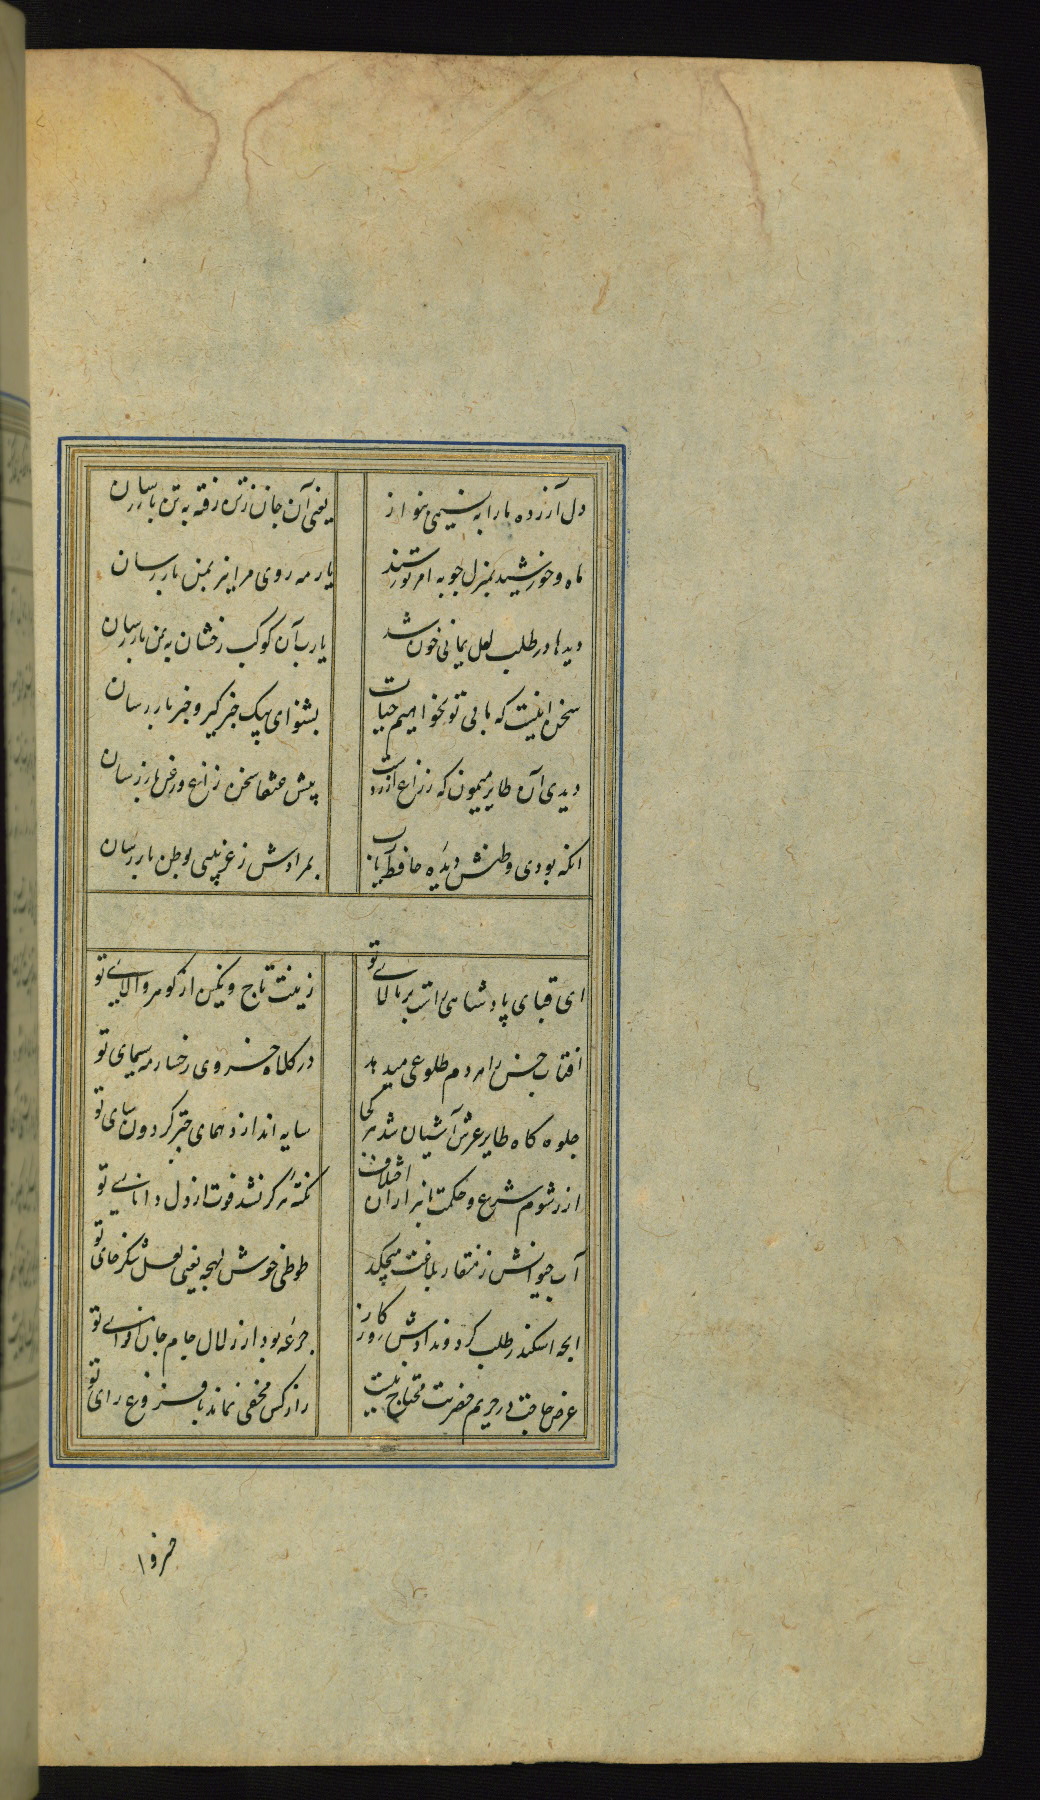 دل آزرده ما را به نسیمی بنواز
یعنی آن جان ز تن رفته به تن باز رسان
ماه و خورشید بمنزل چو به امر تو رسند
یار مه روی مرا نیز بمن باز رسان
دیدها در طلب لعل یمانی خون شد
یا رب آن کوکب رخشان به یمن باز رسان
سخن اینست که ما بی تو نخواهیم حیات
بشنو ای پیک خبر گیر و خبر باز رسان
دیدی آن طایر میمون که ز زاغ آزردست
پیش عنقا سخن زاغ و زغن باز رسان
آنکه بودی وطنش دیده حافظ یا رب
بمرادش ز غریبی بوطن باز رسان
ای قبای پادشاهی راست بر بالای تو
زینت تاج و نگین از گوهر والای تو
آفتاب حسن را هر دم طلوعی میدهد
در کلاه خسروی رخسار مه سیمای تو
جلوه گاه طایر عرش آشیان شد هر کجا
سایه اندازد همای چتر گردون سای تو
از رسوم شرع و حکمت با هزاران اختلاف
نکته هرگز نشد فوت از دل دانای تو
آب حیوانش ز منقار بلاغت میچکد
طوطی خوش لهجه یعنی لعل شکر خای تو
آنچه اسکندر طلب کرد و ندادش روزگار
جرعه بود از زلال جام جان افزای تو
عرض حاجت در حریم حضرتت محتاج نیست
راز کس مخفی نماند با فروغ رای تو